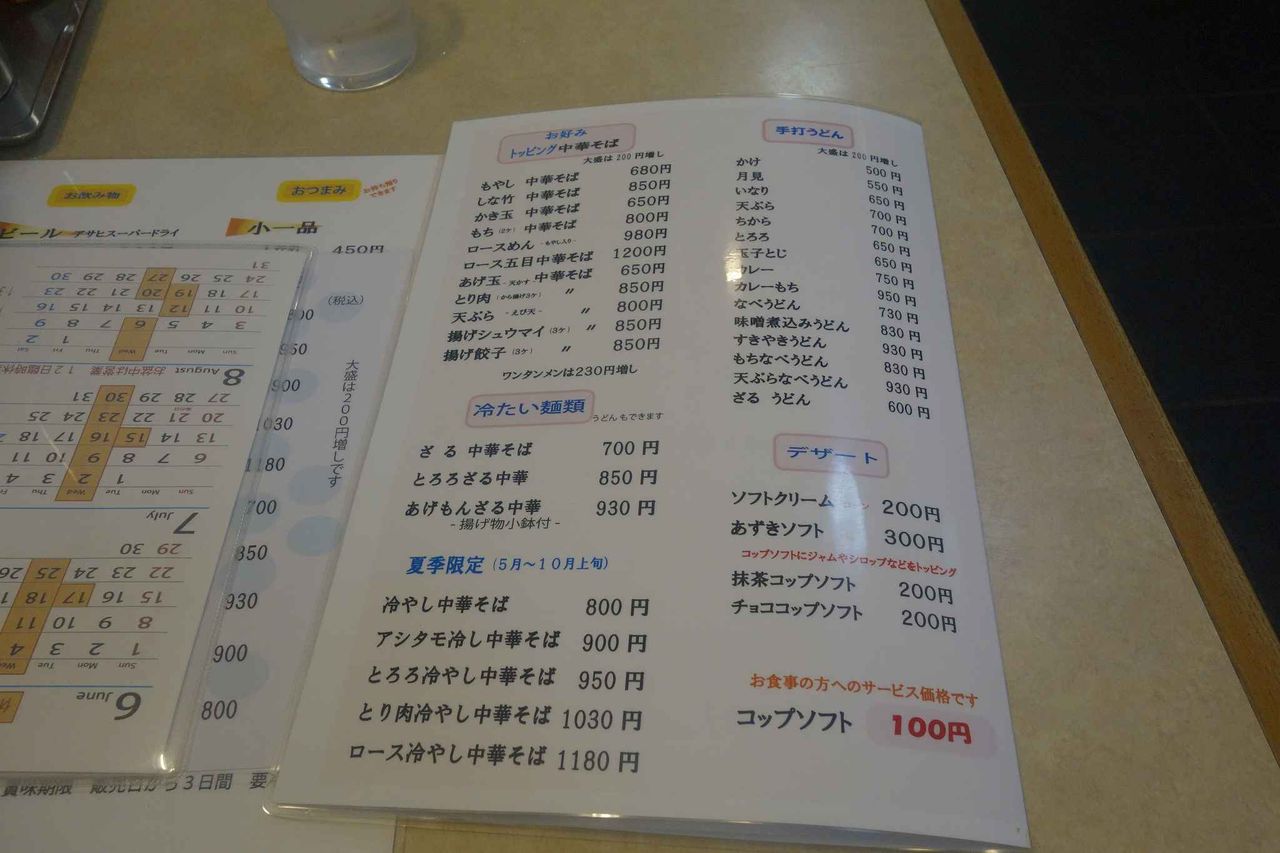 お好み
トッピング中華そば
大盛は200円増し
もやし 中華そば 680円
しな竹 中華そば 850円
かき玉 中華そば 650円
もち(2ケ) 中華そば 800円
ロースめん -もやし入り- 980円
ロース五目中華そば 1200円
あげ玉 -天かす- 中華そば 650円
とり肉 (から揚げ3ケ) 〃 850円
天ぷら -えび天- 〃 800円
揚げシュウマイ(3ケ) 〃 850円
揚げ餃子(3ケ) 〃 850円
ワンタンメンは230円増し
冷たい麺類 うどんもできます
ざる 中華そば 700円
とろろざる中華 850円
あげもんざる中華 930円
-揚げ物小鉢付-
夏季限定(5月～10月上旬)
冷やし中華そば 800円
アシタモ冷し中華そば 900円
とろろ冷やし中華そば 950円
とり肉冷やし中華そば 1030円
ロース冷やし中華そば 1180円
手打うどん
大盛は200円増し
かけ 500円
月見 550円
いなり 650円
天ぷら 700円
ちから 700円
とろろ 650円
玉子とじ 650円
カレー 750円
カレーもち 950円
なべうどん 730円
味噌煮込みうどん 830円
すきやきうどん 930円
もちなべうどん 830円
天ぷらなべうどん 930円
ざる うどん 600円
デザート
ソフトクリーム コーン 200円
あずきソフト 300円
コップソフトにジャムやシロップなどをトッピング
抹茶コップソフト 200円
チョココップソフト 200円
お食事の方へのサービス価格です
コップソフト 100円
お飲み物
おつまみ
お持ち帰りできます
ビール アサヒスーパードライ
小一品
450円
(税込)
大盛は200円増しです
900
1180
700
850
930
900
800
賞味期限 販売日から3日間 要
8 August お盆中は営業 12日臨時休
Sun Mon Tue Wed Thu Fri Sat
1 2
3 4 5 6 7 8 9
10 11 12 13 14 15 16
17 18 19 20 21 22 23
24 25 26 27 28 29 30
31
7 July
Sun Mon Tue Wed Thu
1 2 3 4
6 7 8 9 10 11
13 14 15 16 17 18
20 21 22 23 24 25
27 28 29 30 31
6 June
Sun Mon Tue Wed
1 2 3 4
8 9 10 11
15 16 17 18
22 23 24 25 26
29 30